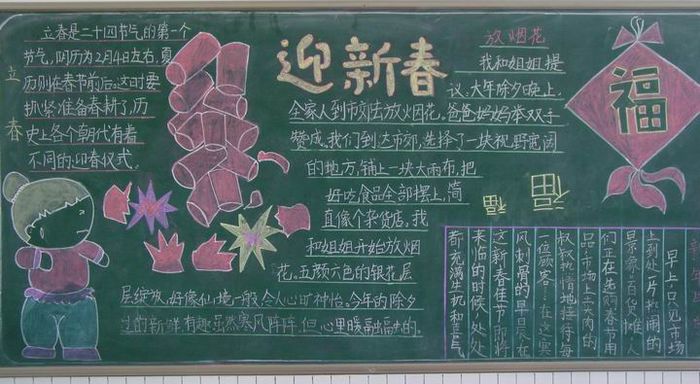 迎新春
立春
立春是二十四节气的第一个
节气,阴历为2月4日左右,夏
历则在春节前后。这时要
抓紧准备春耕了,历
史上各个朝代有着
不同的迎春仪式。
放烟花
我和姐姐提
议,大年除夕晚上,
全家人到市郊去放烟花。爸爸妈妈举双手
赞成。我们到达市郊,选择了一块视野宽阔
的地方,铺上一块大雨布,把
好吃食品全部摆上,简
直像个杂货店,我
和姐姐开始放烟
花。五颜六色的银花层
层绽放,好像仙境一般,令人心旷神怡。今年的除夕
过的新鲜,有趣,虽然寒风阵阵,但心里暖融融的。
福
福
福
早上只见市场
上到处一片热闹的
景象,百货摊,人
们正在选购春节用
品,市场上卖肉的
叔叔热情地招待每
一位顾客。在这寒
风刺骨的早晨,在
这新春佳节即将
来临的时候,处处
都充满生机和喜气